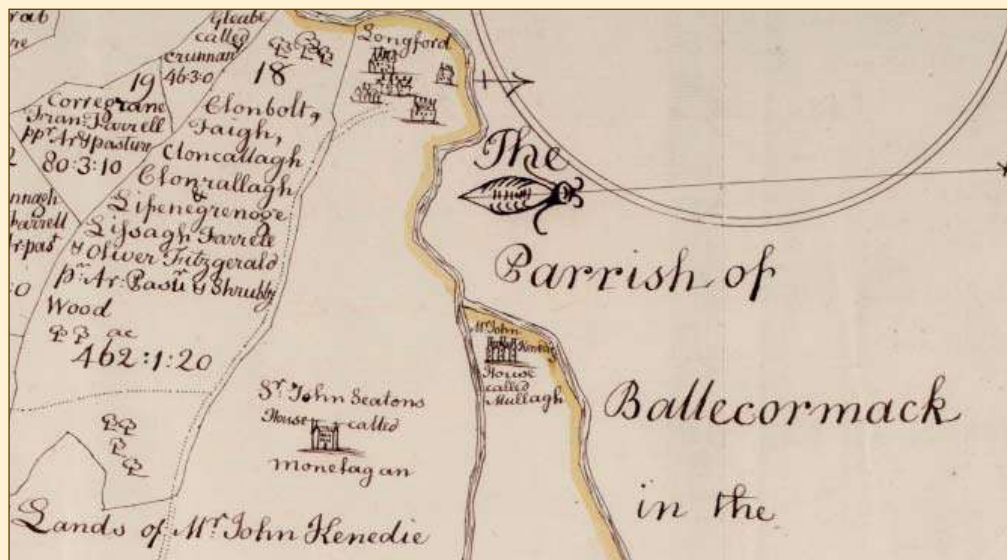 Gleabe
called
crunnan
46:3:0
18
19
Corregrane
Iran: Farrell
ppr Ar & pasture
80:3:10
nnagh
Farrell
Ar: past
:0
Clonbolt,
Faigh,
Cloncallagh
Clonrallagh
&
Lisenegrenoge
Lissagh Farrele
& Oliver Fitzgerald
pr: Ar: Pastr & Shrubby
Wood
ac
462:1:20
Longford
The
Parrish of
Ballecormack
in the
Mr John
House
called
Mullagh
Sr John Seatons
House called
Monelagan
Lands of Mr John Kenedie